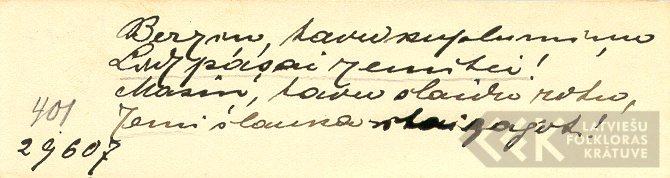 Berziņ, tavu kuplumiņu
Lidz pašai zemitei!
Masiņ, tavu slaidu rotu,
Zemi slauka staigajot!
401
29607
LATVIEŠU
FOLKLORAS
KRĀTUVE